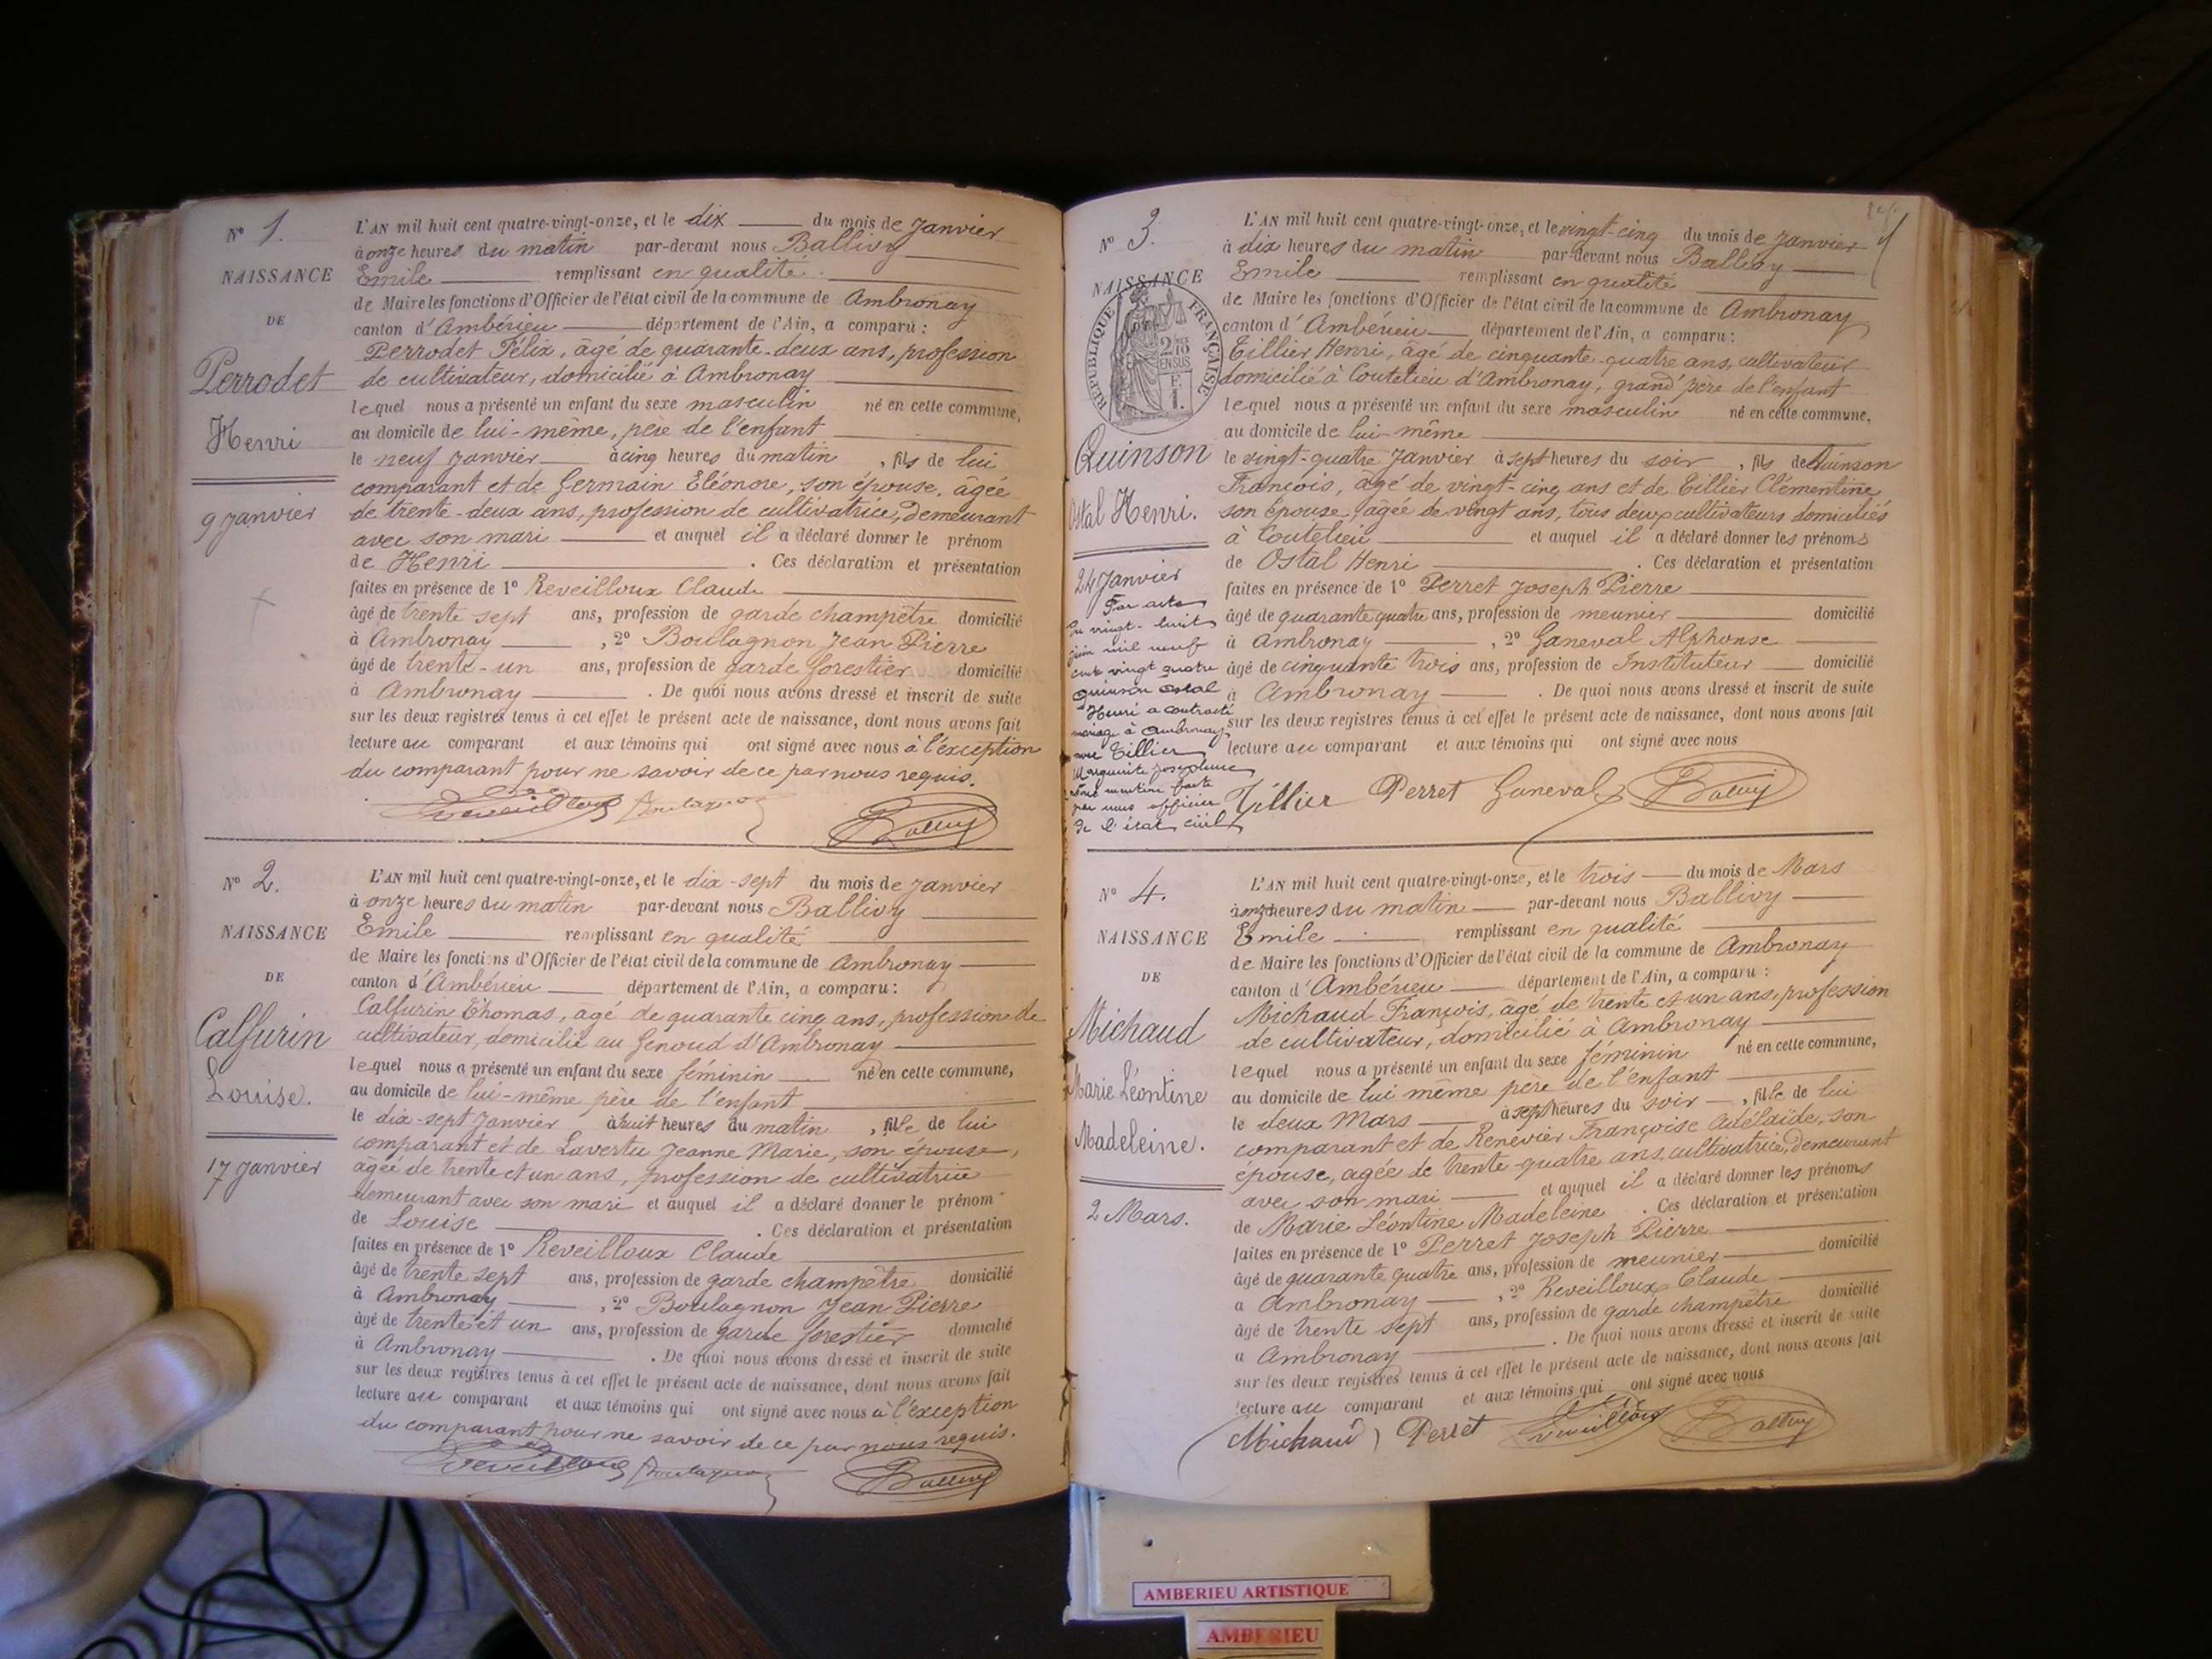 N° 1.
NAISSANCE
DE
Perrodet
Henri
9 Janvier
L'AN mil huit cent quatre-vingt-onze, et le dix du mois de Janvier
à onze heures du matin par-devant nous Ballivy
Emile remplissant en qualité
de Maire les fonctions d'Officier de l'état civil de la commune de Ambronay
canton d'Ambérieu département de l'Ain, a comparu :
Perrodet Félix, âgé de quarante-deux ans, profession
de cultivateur, domicilié à Ambronay
lequel nous a présenté un enfant du sexe masculin né en cette commune,
au domicile de lui-même, père de l'enfant
le neuf Janvier à cinq heures du matin, fils de lui
comparant et de Germain Eléonore, son épouse, âgée
de trente-deux ans, profession de cultivatrice, demeurant
avec son mari et auquel il a déclaré donner le prénom
de Henri . Ces déclaration et présentation
faites en présence de 1° Reveilloux Claude
âgé de trente sept ans, profession de garde champêtre domicilié
à Ambronay , 2° Boulagnon Jean Pierre
âgé de trente-un ans, profession de garde forestier domicilié
à Ambronay . De quoi nous avons dressé et inscrit de suite
sur les deux registres tenus à cet effet le présent acte de naissance, dont nous avons fait
lecture au comparant et aux témoins qui ont signé avec nous à l'exception
du comparant pour ne savoir de ce par nous requis.
Reveilloux Boulagnon Ballivy
N° 2.
NAISSANCE
DE
Calfurin
Louise.
17 Janvier
L'AN mil huit cent quatre-vingt-onze, et le dix-sept du mois de Janvier
à onze heures du matin par-devant nous Ballivy
Emile remplissant en qualité
de Maire les fonctions d'Officier de l'état civil de la commune de Ambronay
canton d'Ambérieu département de l'Ain, a comparu :
Calfurin Thomas, âgé de quarante cinq ans, profession de
cultivateur, domicilié au Genoud d'Ambronay
lequel nous a présenté un enfant du sexe féminin né en cette commune,
au domicile de lui-même père de l'enfant
le dix-sept Janvier à huit heures du matin , fille de lui
comparant et de Lavertu Jeanne Marie, son épouse,
âgée de trente et un ans, profession de cultivatrice
demeurant avec son mari et auquel il a déclaré donner le prénom
de Louise . Ces déclaration et présentation
faites en présence de 1° Reveilloux Claude
âgé de trente sept ans, profession de garde champêtre domicilié
à Ambronay , 2° Boulagnon Jean Pierre
âgé de trente et un ans, profession de garde forestier domicilié
à Ambronay . De quoi nous avons dressé et inscrit de suite
sur les deux registres tenus à cet effet le présent acte de naissance, dont nous avons fait
lecture au comparant et aux témoins qui ont signé avec nous à l'exception
du comparant pour ne savoir de ce par nous requis.
Reveilloux Boulagnon Ballivy
N° 3.
NAISSANCE
RÉPUBLIQUE FRANÇAISE
2/10 EN SUS
F. 1.
Quinson
Ostal Henri.
24 Janvier
Par acte
du vingt-huit
juin mil neuf
cent vingt quatre
Quinson Ostal
Henri a contracté
mariage à Ambronay
avec Tillier
Marguerite Josephine
mention faite
par nous officier
de l'état civil
L'AN mil huit cent quatre-vingt-onze, et le vingt-cinq du mois de Janvier
à dix heures du matin par-devant nous Ballivy
Emile remplissant en qualité
de Maire les fonctions d'Officier de l'état civil de la commune de Ambronay
canton d'Ambérieu département de l'Ain, a comparu :
Tillier Henri, âgé de cinquante-quatre ans, cultivateur
domicilié à Coutelieu d'Ambronay, grand'père de l'enfant
lequel nous a présenté un enfant du sexe masculin né en cette commune,
au domicile de lui-même
le vingt-quatre Janvier à sept heures du soir , fils de Quinson
François, âgé de vingt-cinq ans et de Tillier Clémentine
son épouse, âgée de vingt ans, tous deux cultivateurs domiciliés
à Coutelieu et auquel il a déclaré donner les prénoms
de Ostal Henri . Ces déclaration et présentation
faites en présence de 1° Perret Joseph Pierre
âgé de quarante quatre ans, profession de meunier domicilié
à Ambronay , 2° Ganeval Alphonse
âgé de cinquante trois ans, profession de Instituteur domicilié
à Ambronay . De quoi nous avons dressé et inscrit de suite
sur les deux registres tenus à cet effet le présent acte de naissance, dont nous avons fait
lecture au comparant et aux témoins qui ont signé avec nous
Tillier Perret Ganeval Ballivy
N° 4.
NAISSANCE
DE
Michaud
Marie Léontine
Madeleine.
2 Mars.
L'AN mil huit cent quatre-vingt-onze, et le trois du mois de Mars
à onze heures du matin par-devant nous Ballivy
Emile remplissant en qualité
de Maire les fonctions d'Officier de l'état civil de la commune de Ambronay
canton d'Ambérieu département de l'Ain, a comparu :
Michaud François, âgé de trente et un ans, profession
de cultivateur, domicilié à Ambronay
lequel nous a présenté un enfant du sexe féminin né en cette commune,
au domicile de lui même père de l'enfant
le deux Mars à sept heures du soir , fille de lui
comparant et de Renevier Françoise Adélaïde, son
épouse, agée de trente-quatre ans, cultivatrice, demeurant
avec son mari et auquel il a déclaré donner les prénoms
de Marie Léontine Madeleine . Ces déclaration et présentation
faites en présence de 1° Perret Joseph Pierre
âgé de quarante quatre ans, profession de meunier domicilié
à Ambronay , 2° Reveilloux Claude
âgé de trente sept ans, profession de garde champêtre domicilié
à Ambronay . De quoi nous avons dressé et inscrit de suite
sur les deux registres tenus à cet effet le présent acte de naissance, dont nous avons fait
lecture au comparant et aux témoins qui ont signé avec nous
Michaud Perret Reveilloux Ballivy
AMBERIEU ARTISTIQUE
AMBERIEU